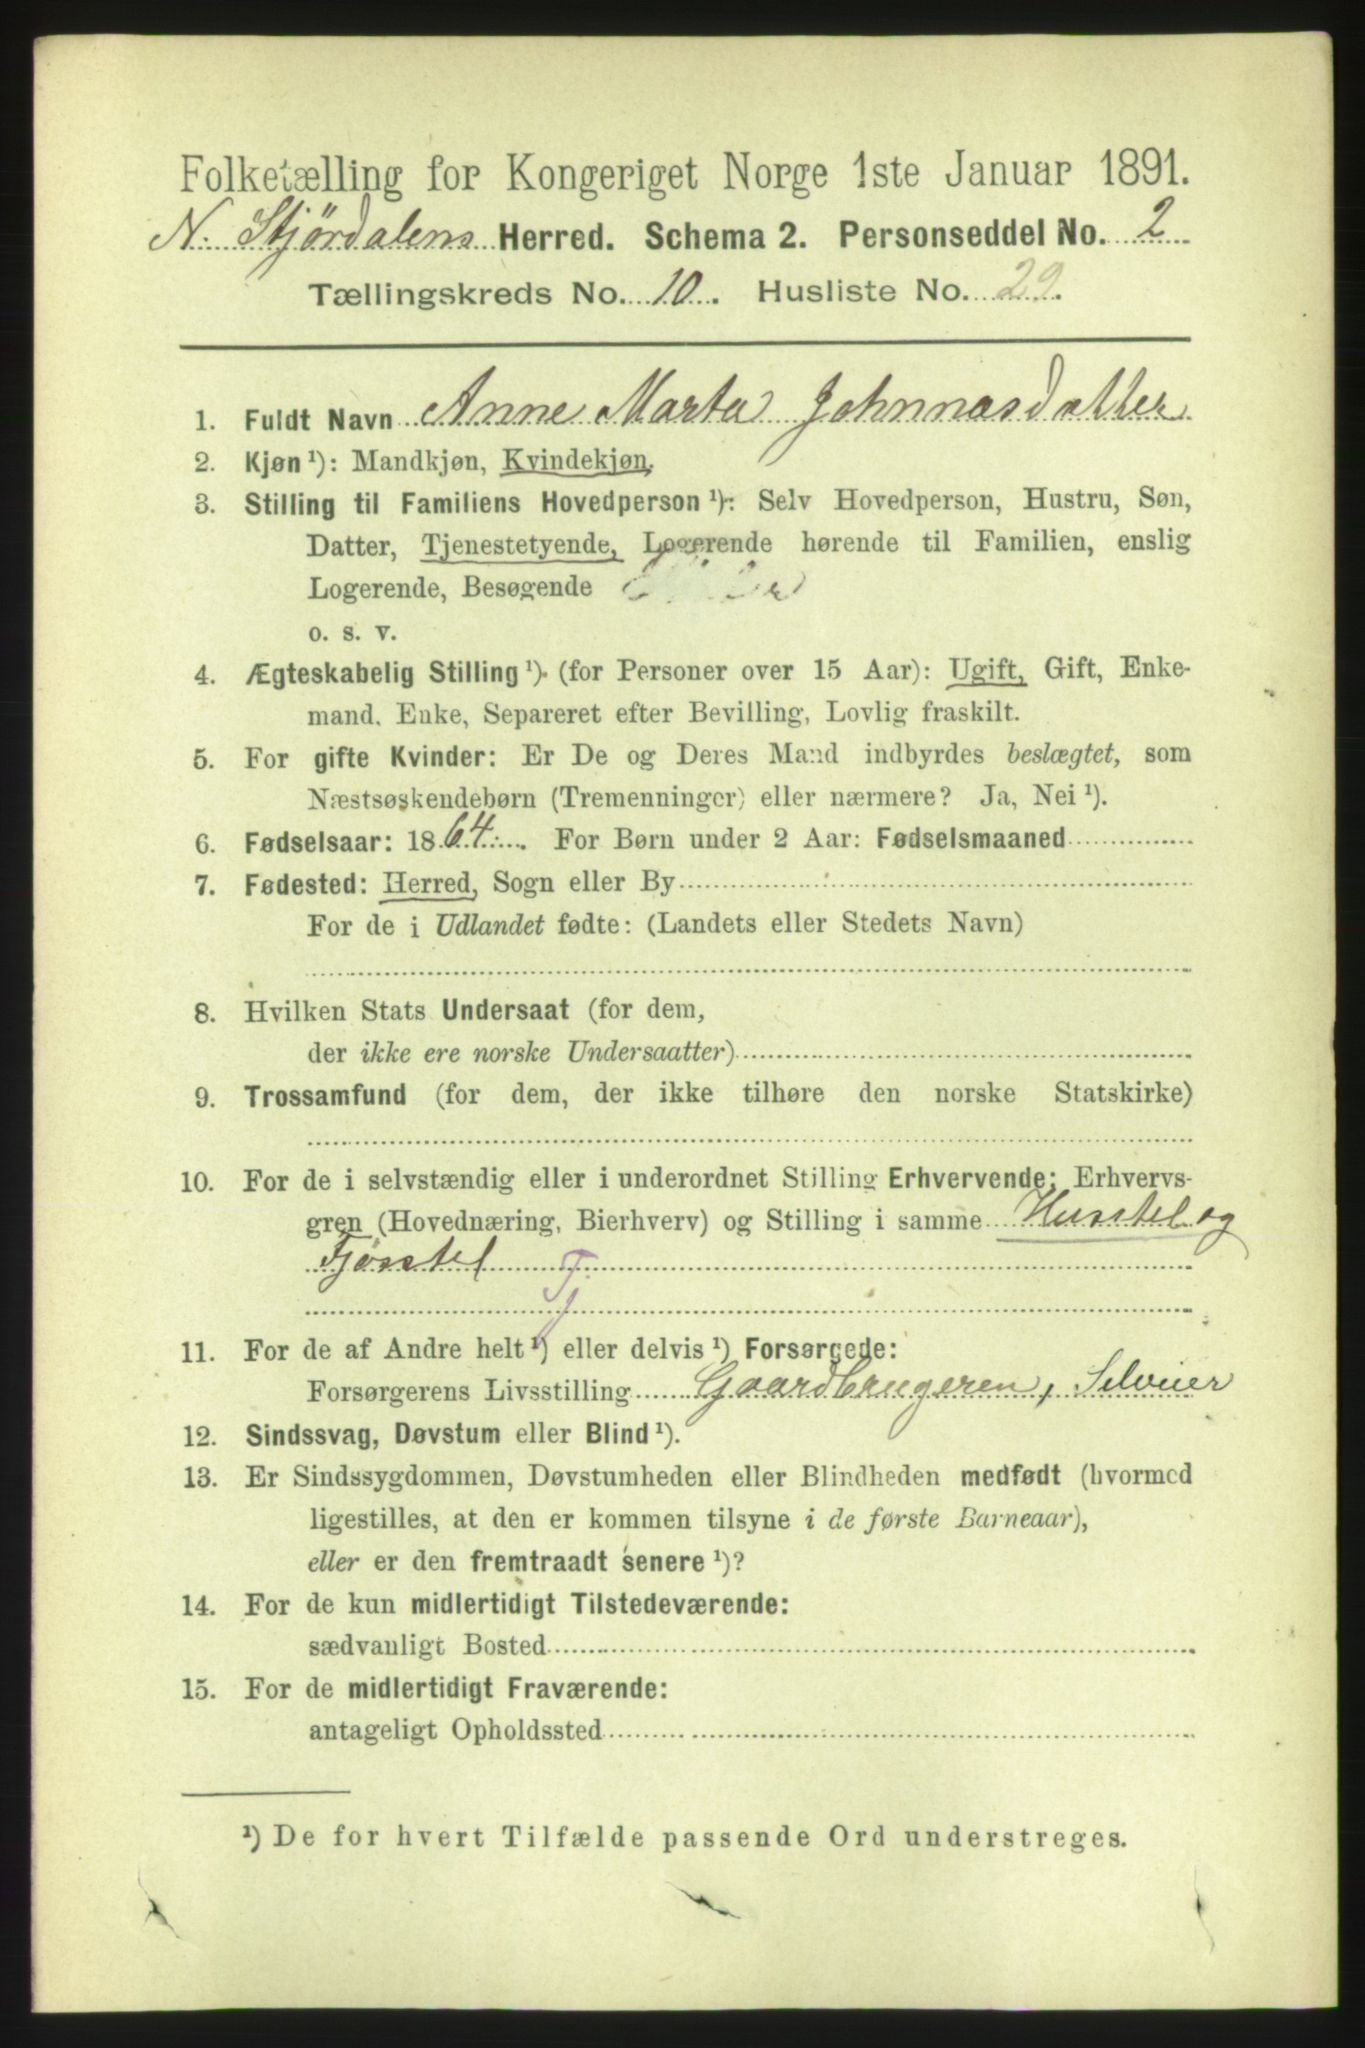 Folketælling for Kongeriget Norge 1ste Januar 1891.
N. Stjørdalens Herred. Schema 2. Personseddel No. 2
Tællingskreds No. 10. Husliste No. 29.
1. Fuldt Navn Anne Marta Johnnasdatter
2. Kjøn ¹): Mandkjøn, Kvindekjøn.
3. Stilling til Familiens Hovedperson ¹): Selv Hovedperson, Hustru, Søn,
Datter, Tjenestetyende, Logerende hørende til Familien, enslig
Logerende, Besøgende
o. s. v.
4. Ægteskabelig Stilling ¹). (for Personer over 15 Aar): Ugift, Gift, Enke-
mand, Enke, Separeret efter Bevilling, Lovlig fraskilt.
5. For gifte Kvinder: Er De og Deres Mand indbyrdes beslægtet, som
Næstsøskendebørn (Tremenninger) eller nærmere? Ja, Nei ¹).
6. Fødselsaar: 1864. For Børn under 2 Aar: Fødselsmaaned
7. Fødested: Herred, Sogn eller By
For de i Udlandet fødte: (Landets eller Stedets Navn)
8. Hvilken Stats Undersaat (for dem,
der ikke ere norske Undersaatter)
9. Trossamfund (for dem, der ikke tilhøre den norske Statskirke)
10. For de i selvstændig eller i underordnet Stilling Erhvervende: Erhvervs-
gren (Hovednæring, Bierhverv) og Stilling i samme Husstel og
Fjøsstel Tj
11. For de af Andre helt ¹) eller delvis ¹) Forsørgede:
Forsørgerens Livsstilling Gaardbrugeren, Selveier
12. Sindssvag, Døvstum eller Blind ¹).
13. Er Sindssygdommen, Døvstumheden eller Blindheden medfødt (hvormed
ligestilles, at den er kommen tilsyne i de første Barneaar),
eller er den fremtraadt senere ¹)?
14. For de kun midlertidigt Tilstedeværende:
sædvanligt Bosted
15. For de midlertidigt Fraværende:
antageligt Opholdssted
¹) De for hvert Tilfælde passende Ord understreges.